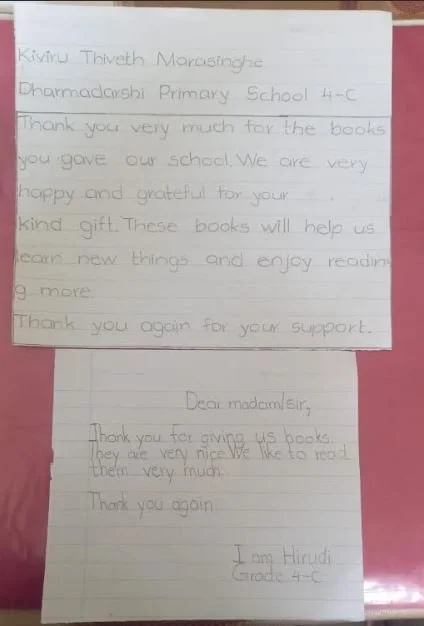 Kiviru Thiveth Marasinghe
Dharmadarshi Primary School 4-C
Thank you very much for the books
you gave our school. We are very
happy and grateful for your
kind gift. These books will help us
learn new things and enjoy readin
g more.
Thank you again for your support.
Dear madam/sir,
Thank you for giving us books.
They are very nice. We like to read
them very much.
Thank you again
I am Hirudi
Grade 4-C